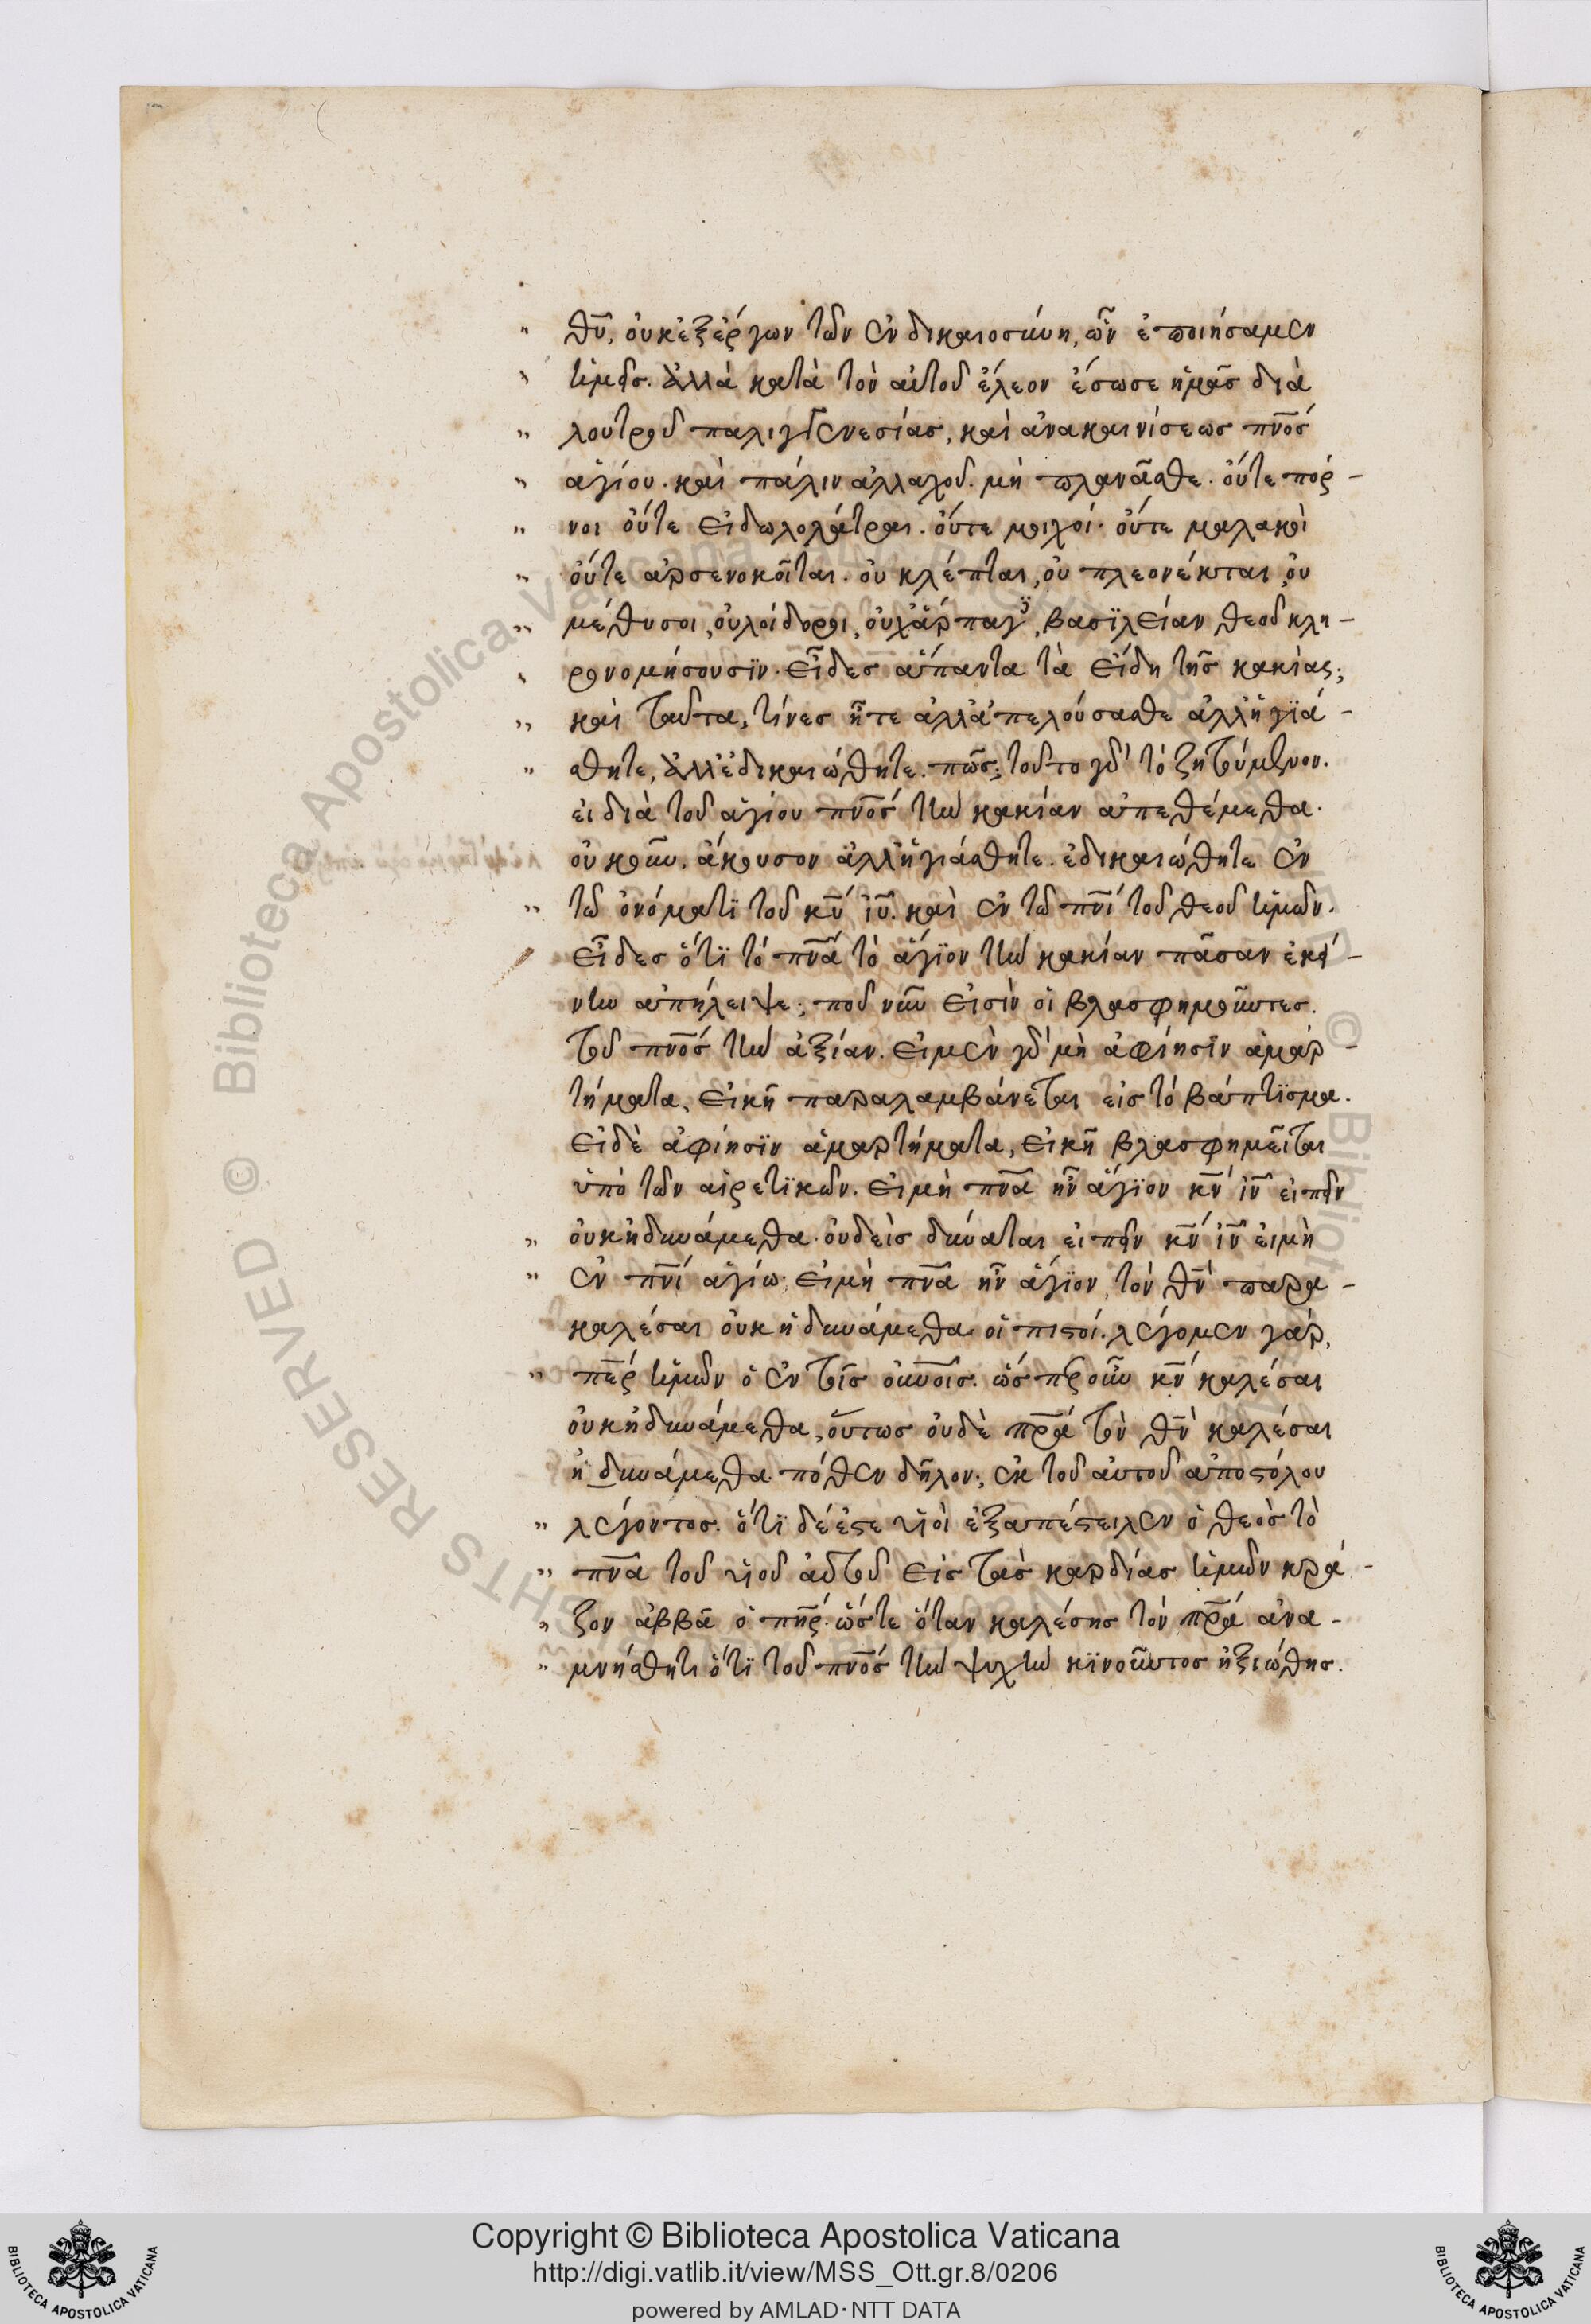 θῦ, οὐκ ἐξ ἔργων τῶν ἐν δικαιοσύνη, ὧν ἐποιήσαμεν
ἡμεῖς. ἀλλὰ κατὰ τὸν αὐτοῦ ἔλεον ἔσωσε ἡμᾶς διὰ
λουτροῦ παλιγγενεσίας, καὶ ἀνακαινίσεως πνὸς
ἁγίου. καὶ πάλιν ἀλλαχοῦ. μὴ πλανᾶσθε. οὔτε πόρ-
νοι οὔτε εἰδωλολάτραι. οὔτε μοιχοί. οὔτε μαλακοὶ
οὔτε ἀρσενοκοῖται. οὐ κλέπται, οὐ πλεονέκται, οὐ
μέθυσοι, οὐ λοίδοροι, οὐχ ἅρπαγες, βασϊλείαν θεοῦ κλη-
ρονομήσουσϊν. εἶδες ἅπαντα τὰ εἴδη τῆς κακίας;
καὶ ταῦτα, τίνες ἦτε ἀλλ' ἀπελούσασθε ἀλλ' ἡγϊά-
σθητε, ἀλλ' ἐδικαιώθητε. πῶς; τοῦτο γὰρ τὸ ζητούμενον.
εἰ διὰ τοῦ ἁγίου πνὸς τὴν κακίαν ἀπεθέμεθα.
οὐκοῦν. ἄκουσον ἀλλ' ἡγιάσθητε. ἐδικαιώθητε ἐν
τῶ ὀνόματϊ τοῦ κῦ ἰῦ. καὶ ἐν τῶ πνὶ τοῦ θεοῦ ἡμῶν.
εἶδες ὅτϊ τὸ πνᾶ τὸ ἅγϊον τὴν κακίαν πᾶσαν ἐκεί-
νην ἀπήλειψε; ποῦ νῦν εἰσὶν οἱ βλασφημοῦντες.
τοῦ πνὸς τὴν ἀξίαν. εἰ μὲν γὰρ μὴ ἀφίησϊν ἁμαρ-
τήματα, εἰκῆ παραλαμβάνεται εἰς τὸ βάπτϊσμα.
εἰ δὲ ἀφίησϊν ἁμαρτήματα, εἰκῆ βλασφημεῖται
ὑπὸ τῶν αἱρετϊκῶν. εἰ μὴ πνᾶ ἦν ἅγϊον κν ἰν εἰπεῖν
οὐκ ἠδυνάμεθα. οὐδεὶς δύναται εἰπεῖν κν ἰν εἰ μὴ
ἐν πνὶ ἁγίω. εἰ μὴ πνᾶ ἦν ἅγϊον, τὸν θν παρα-
καλέσαι οὐκ ἠδυνάμεθα οἱ πιστοί. λέγομεν γάρ,
πὲρ ἡμῶν ὁ ἐν τοῖς οὐνοῖς. ὥσπερ οὖν κν καλέσαι
οὐκ ἠδυνάμεθα, οὕτως οὐδὲ πρα τὸν θν καλέσαι
ἠδυνάμεθα. πόθεν δῆλον; ἐκ τοῦ αὐτοῦ ἀποστόλου
λέγοντος. ὅτϊ δέ ἐστε υἱοὶ ἐξαπέστειλεν ὁ θεὸς τὸ
πνᾶ τοῦ υἱοῦ αὐτοῦ εἰς τὰς καρδίας ἡμῶν κρά-
ζον ἀββᾶ ὁ πῆρ. ὥστε ὅταν καλέσης τὸν πρα ἀνα-
μνήσθητι ὅτϊ τοῦ πνὸς τὴν ψυχὴν κϊνοῦντος ἠξιώθης.
Copyright © Biblioteca Apostolica Vaticana
http://digi.vatlib.it/view/MSS_Ott.gr.8/0206
powered by AMLAD·NTT DATA